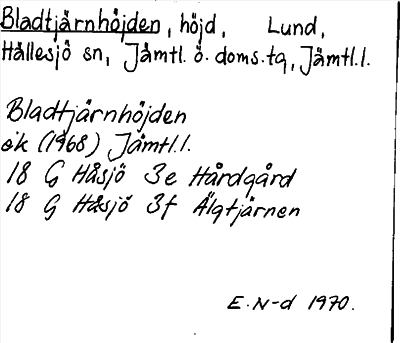 Bladtjärnhöjden, höjd, Lund,
Hällesjö sn, Jämtl. ö. doms.tg, Jämtl.l.
Bladtjärnhöjden
ek (1968) Jämtl.l.
18 G Håsjö 3e Hårdgård
18 G Håsjö 3f Älgtjärnen
E.N-d 1970.